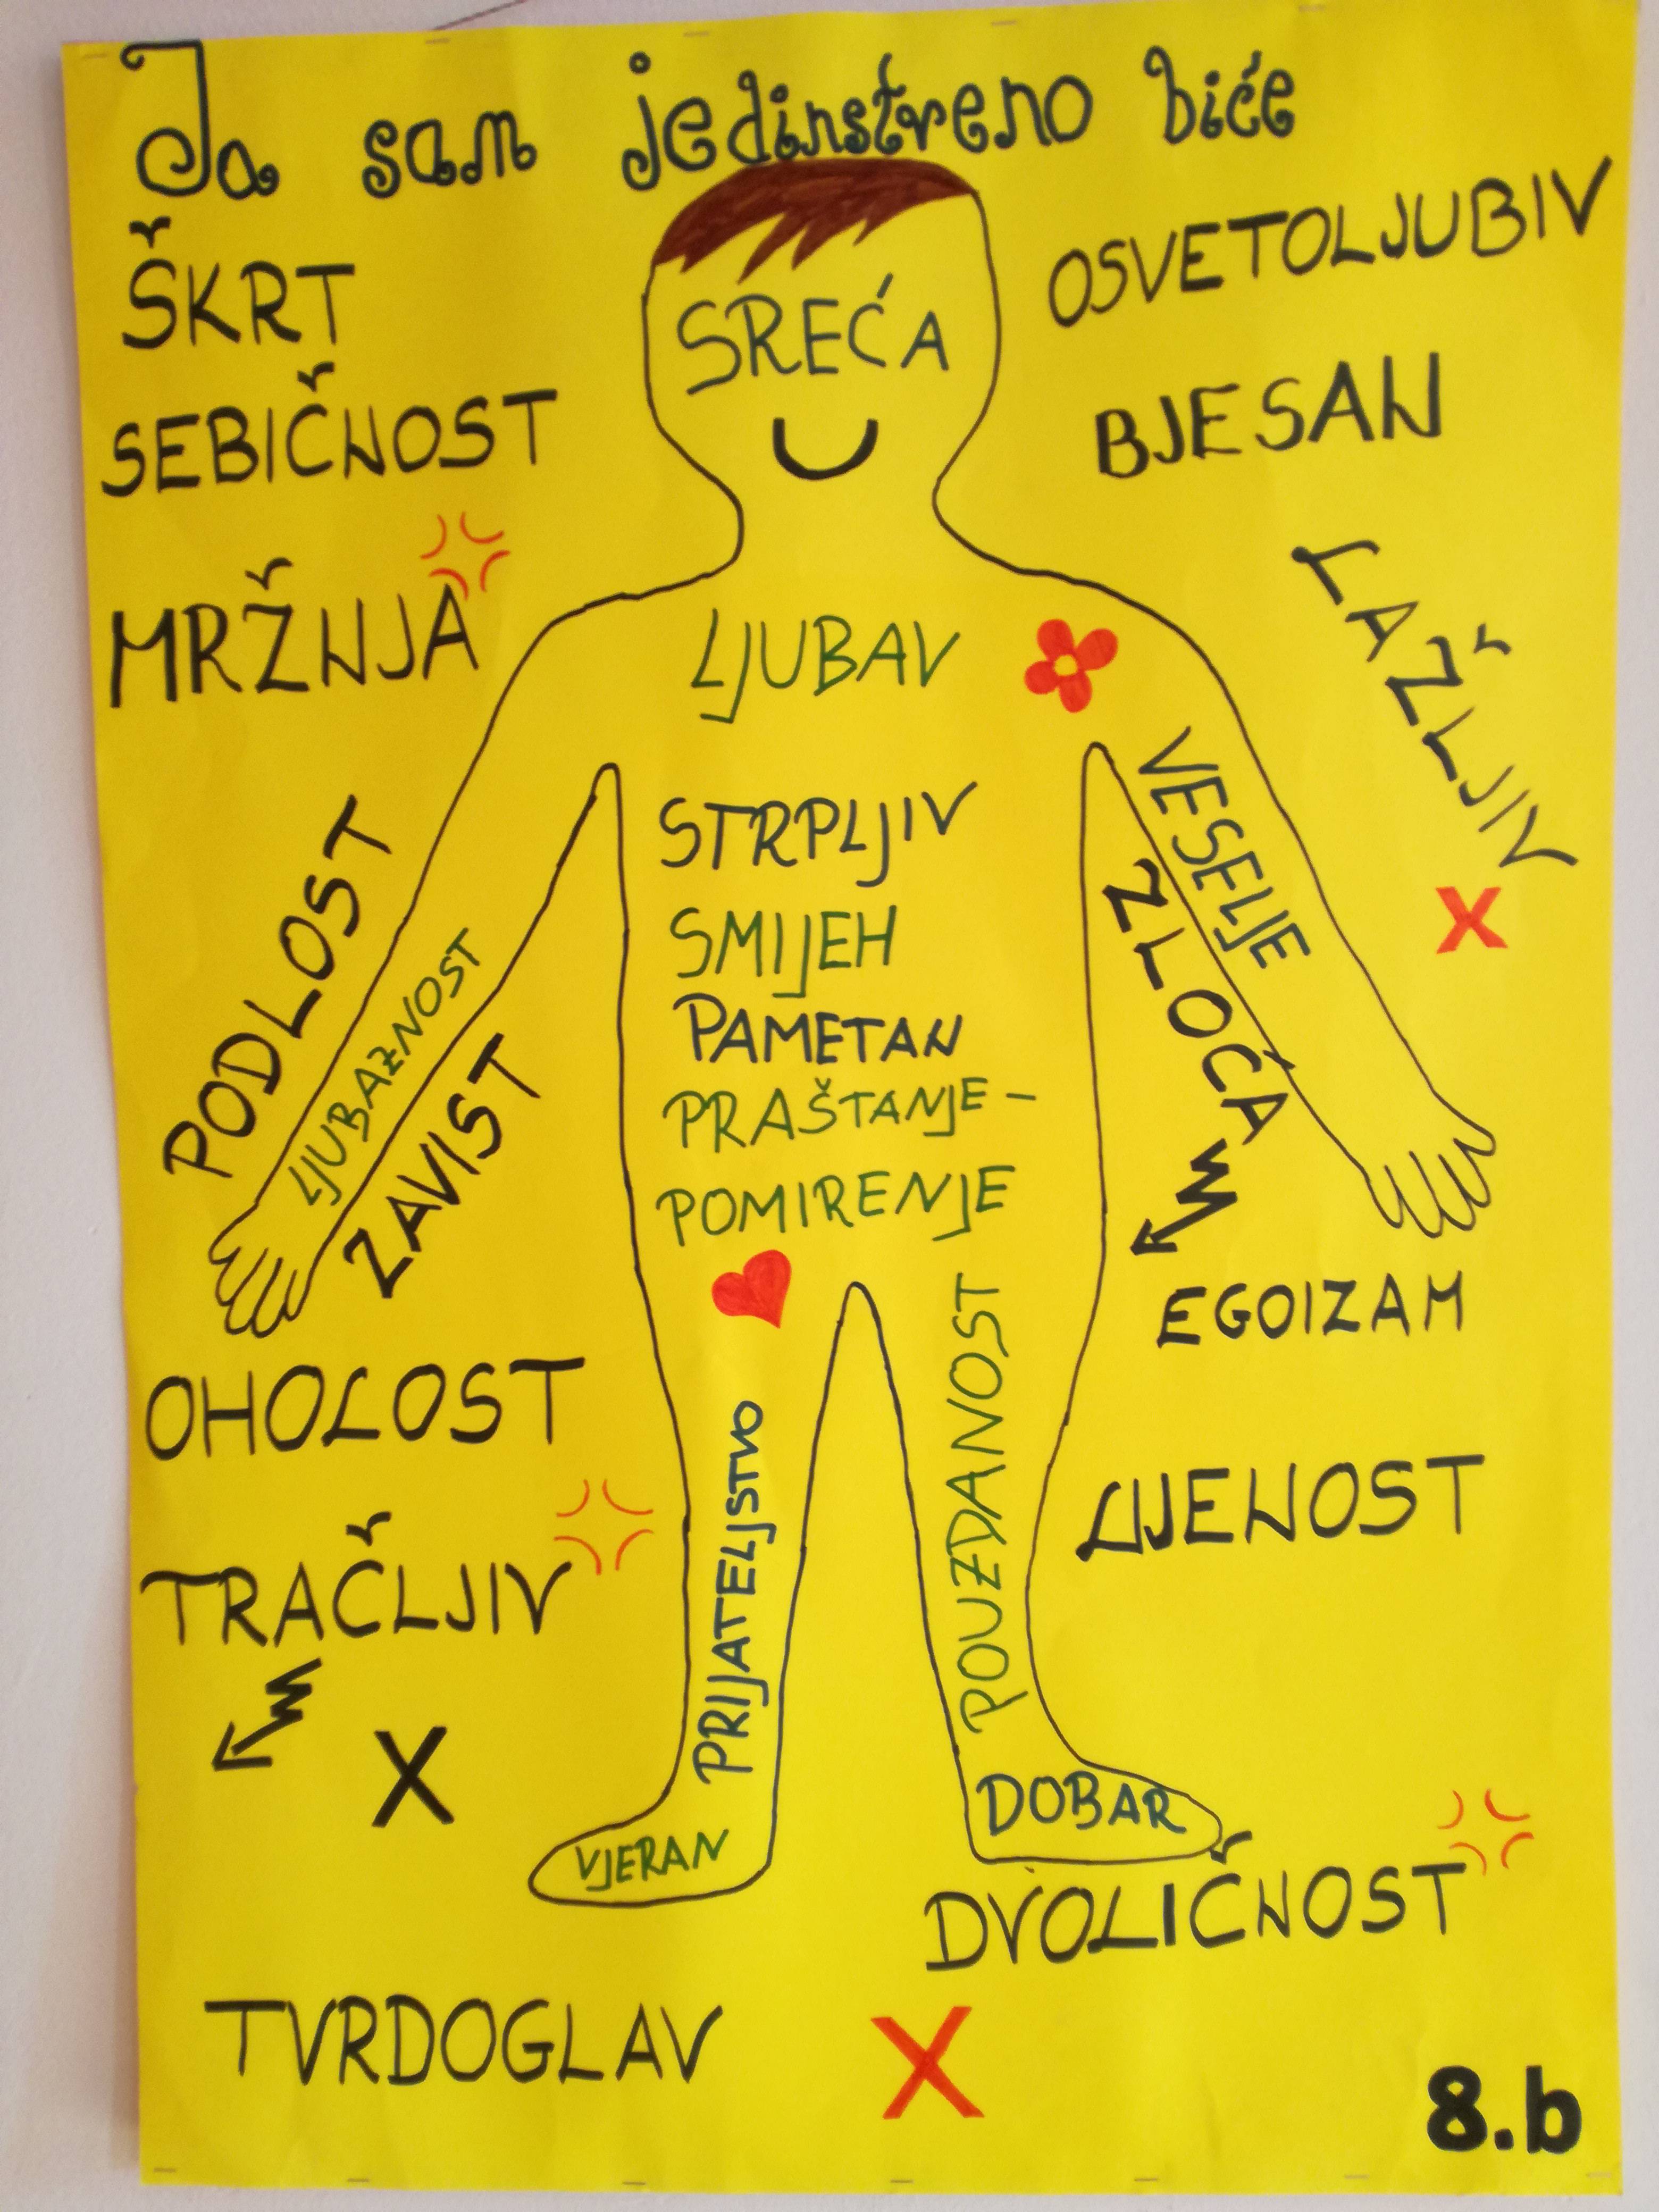 Ja sam jedinstveno biće
ŠKRT
OSVETOLJUBIV
SREĆA
SEBIČNOST
BJESAN
MRŽNJA
LJUBAV
LAŽLJIV
VESELJE
STRPLJIV
PODLOST
ZLOĆA
SMIJEH
LJUBAZNOST
PAMETAN
ZAVIST
PRAŠTANJE -
POMIRENJE
EGOIZAM
OHOLOST
PRIJATELJSTVO
POUZDANOST
LIJENOST
TRAČLJIV
X
DOBAR
VJERAN
DVOLIČNOST
TVRDOGLAV
X
8.b